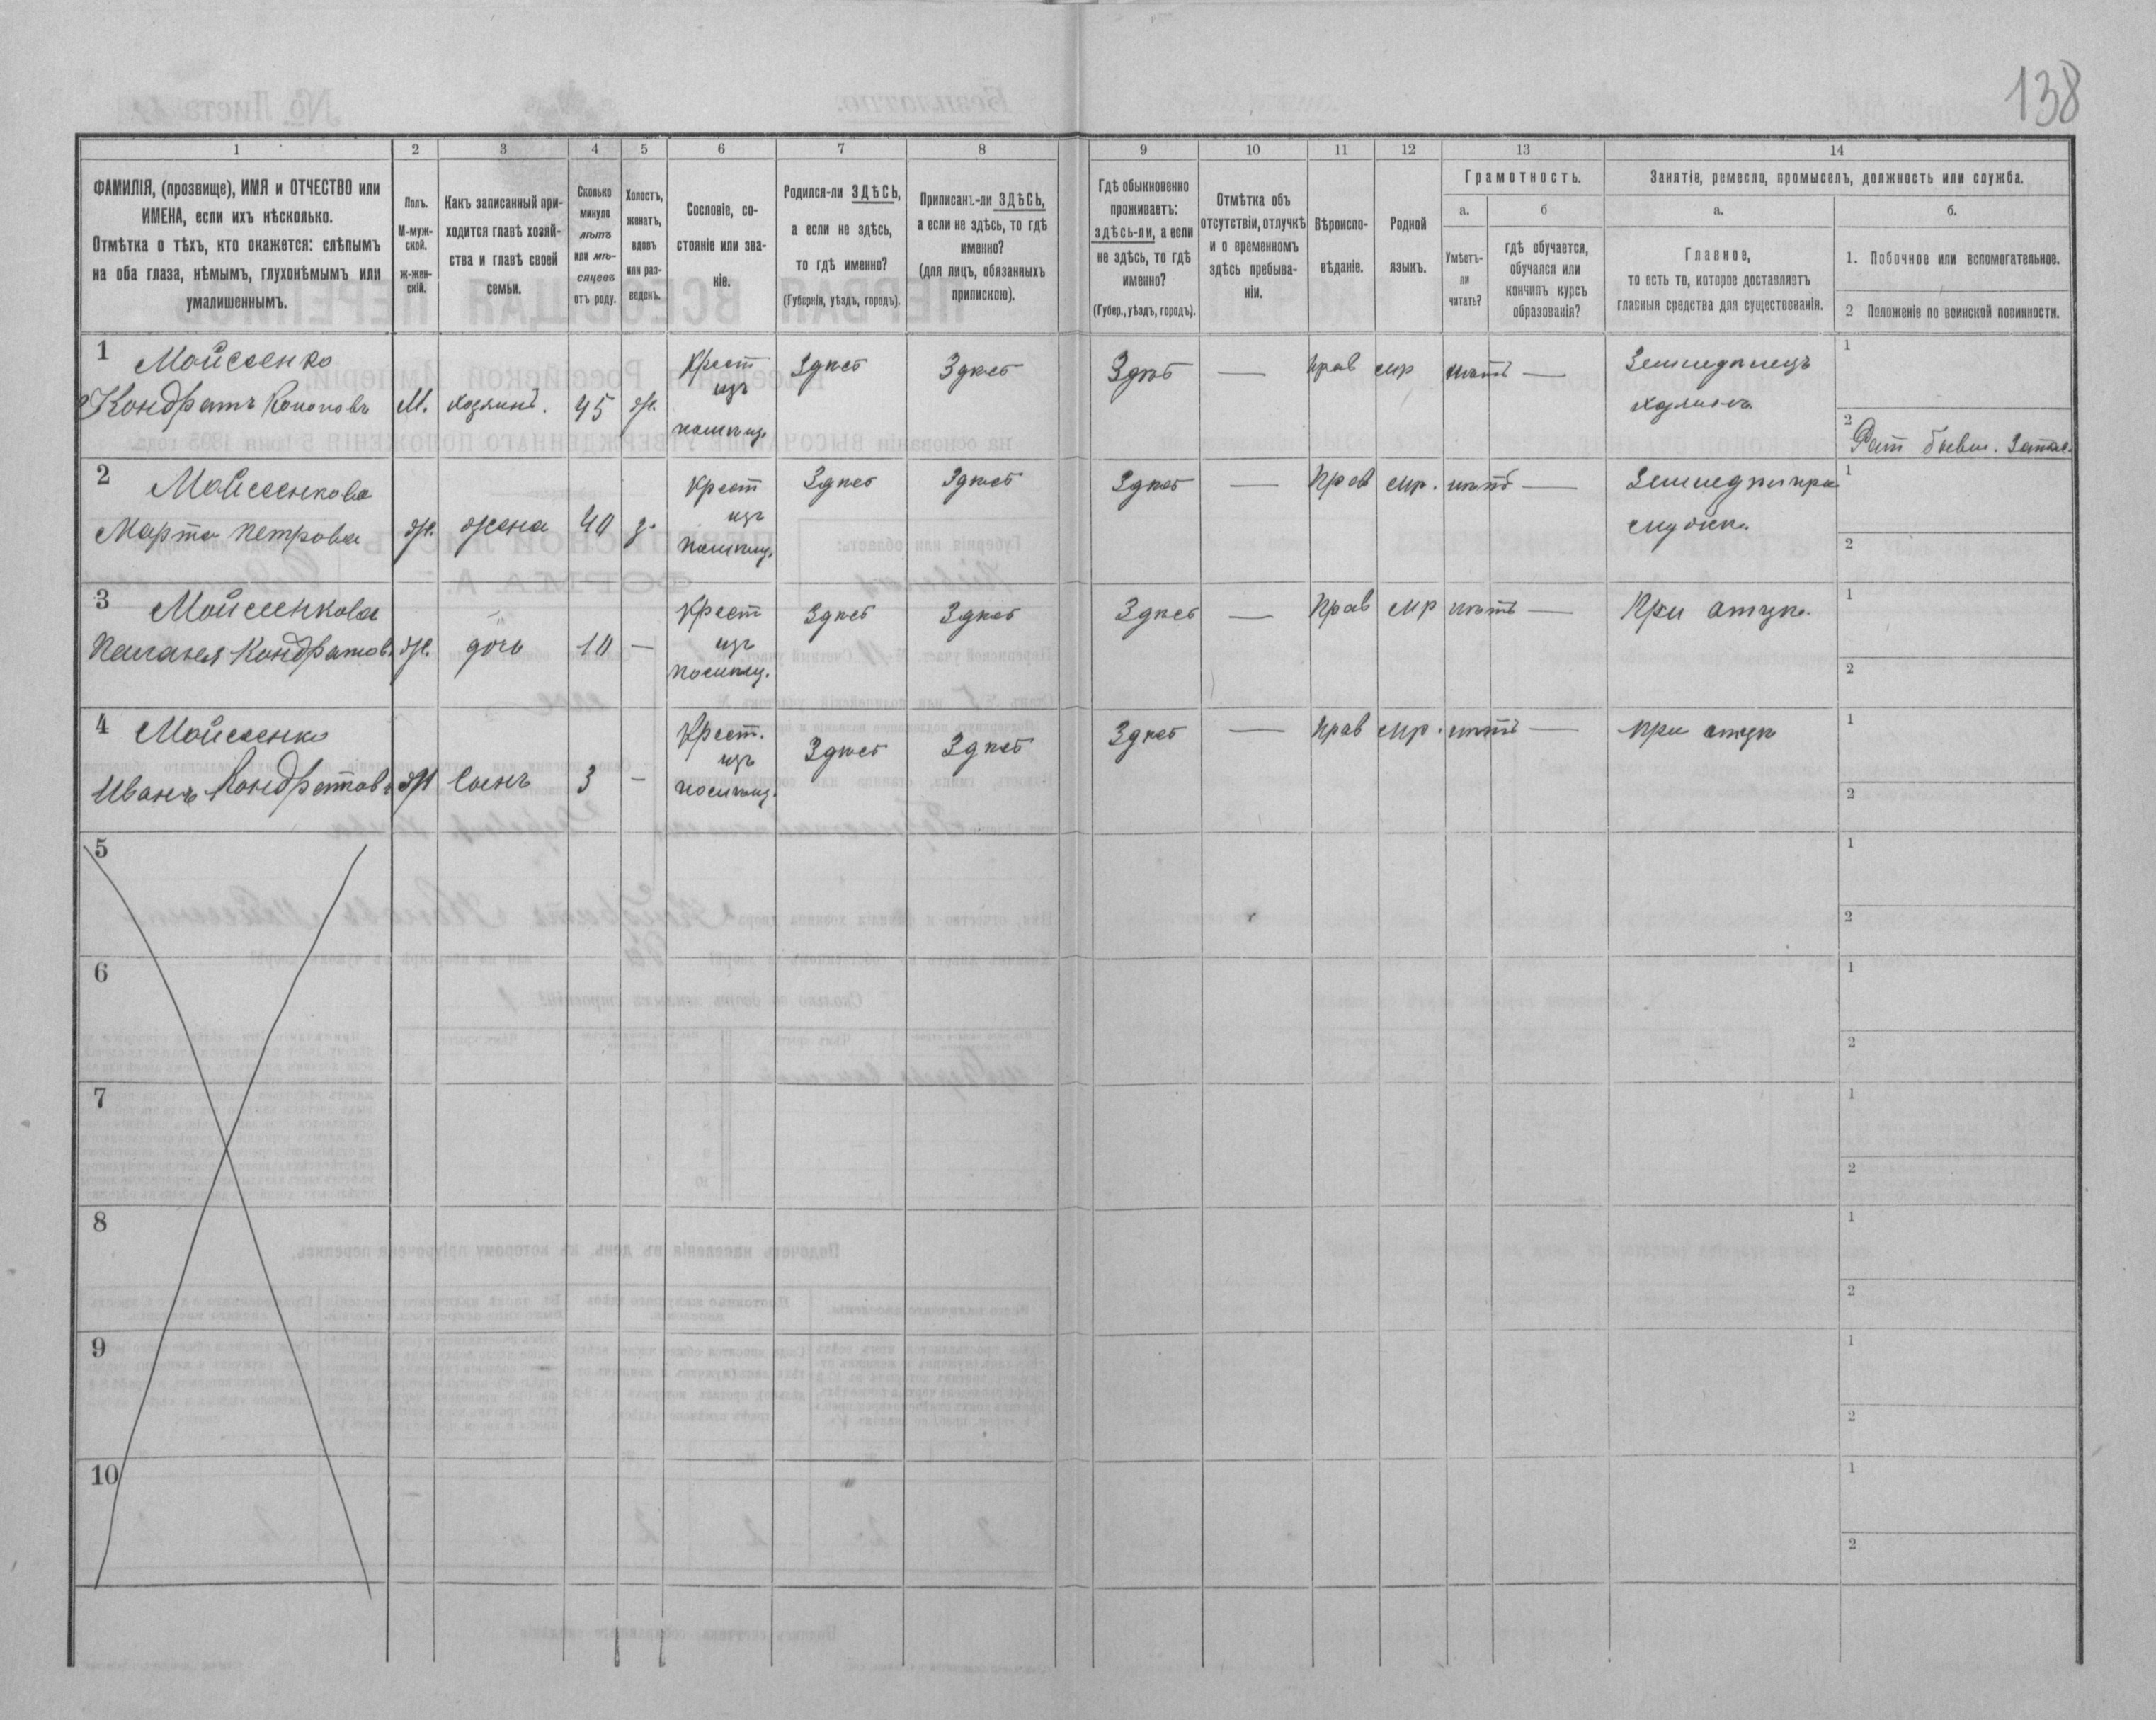 138
1 2 3 4 5 6 7 8 9 10 11 12 13 14
ФАМИЛІЯ, (прозвище), ИМЯ и ОТЧЕСТВО или
ИМЕНА, если ихъ нѣсколько.
Отмѣтка о тѣхъ, кто окажется: слѣпымъ
на оба глаза, нѣмымъ, глухонѣмымъ или
умалишеннымъ.
Полъ.
М-муж-
ской.
ж-жен-
скій.
Какъ записанный при-
ходится главѣ хозяй-
ства и главѣ своей
семьи.
Сколько
минуло
лѣтъ
или мѣ-
сяцевъ
отъ роду.
Холостъ,
женатъ,
вдовъ
или раз-
веденъ.
Сословіе, со-
стояніе или зва-
ніе.
Родился-ли ЗДѢСЬ,
а если не здѣсь,
то гдѣ именно?
(Губернія, уѣздъ, городъ).
Приписанъ-ли ЗДѢСЬ,
а если не здѣсь, то гдѣ
именно?
(для лицъ, обязанныхъ
припискою).
Гдѣ обыкновенно
проживаетъ:
здѣсь-ли, а если
не здѣсь, то гдѣ
именно?
(Губер., уѣздъ, городъ).
Отмѣтка объ
отсутствіи, отлучкѣ
и о временномъ
здѣсь пребыва-
ніи.
Вѣроиспо-
вѣданіе.
Родной
языкъ.
Грамотность.
а.
Умѣетъ-
ли
читать?
б
гдѣ обучается,
обучался или
кончилъ курсъ
образованія?
Занятіе, ремесло, промыселъ, должность или служба.
а.
Главное,
то есть то, которое доставляетъ
главныя средства для существованія.
б.
1. Побочное или вспомогательное.
2 Положеніе по воинской повинности.
1 Мойсеенко
Кондратъ Кононовъ М. хозяинъ. 45 ж.
Крест
изъ
помѣщ.
Здѣсь Здѣсь Здѣсь — прав мр нѣтъ —
Земледѣлецъ
хозяинъ
1
2 Рат
2 Мойсеенкова
Марта Петрова ж. жена 40 з.
Крест
изъ
помѣщ.
Здѣсь Здѣсь Здѣсь — Прав мр. нѣтъ —
Земледѣлъ при
мужѣ.
1
2
3 Мойсеенкова
Пелагея Кондратов. ж. дочь 10 —
Крест
изъ
помѣщ.
Здѣсь Здѣсь Здѣсь — Прав мр нѣтъ —
При отцѣ.
1
2
4 Мойсеенко
Иванъ Кондратовъ М сынъ 3 —
Крест.
изъ
помѣщ.
Здѣсь Здѣсь Здѣсь — Прав мр. нѣтъ —
при отцѣ
1
2
5
1
2
6
1
2
7
1
2
8
1
2
9
1
2
10
1
2